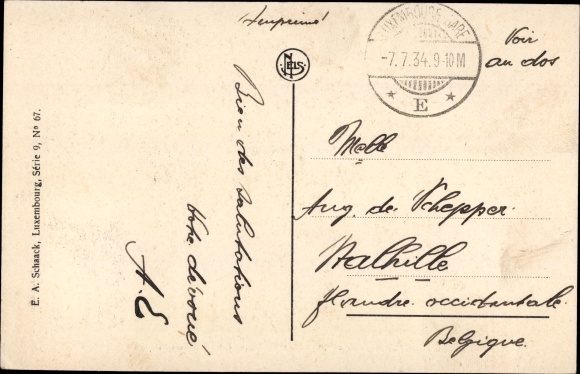 Imprimé
LUXEMBOURG GARE
-7.7.34.9-10M
E
Voir
au dos
NELS
E. A. Schaack, Luxembourg, Série 9, Nº 67.
Bien des salutations
Votre dévoué
A.E
Melle
Aug. de Schepper
Stalhille
flandre occidentale
Belgique.